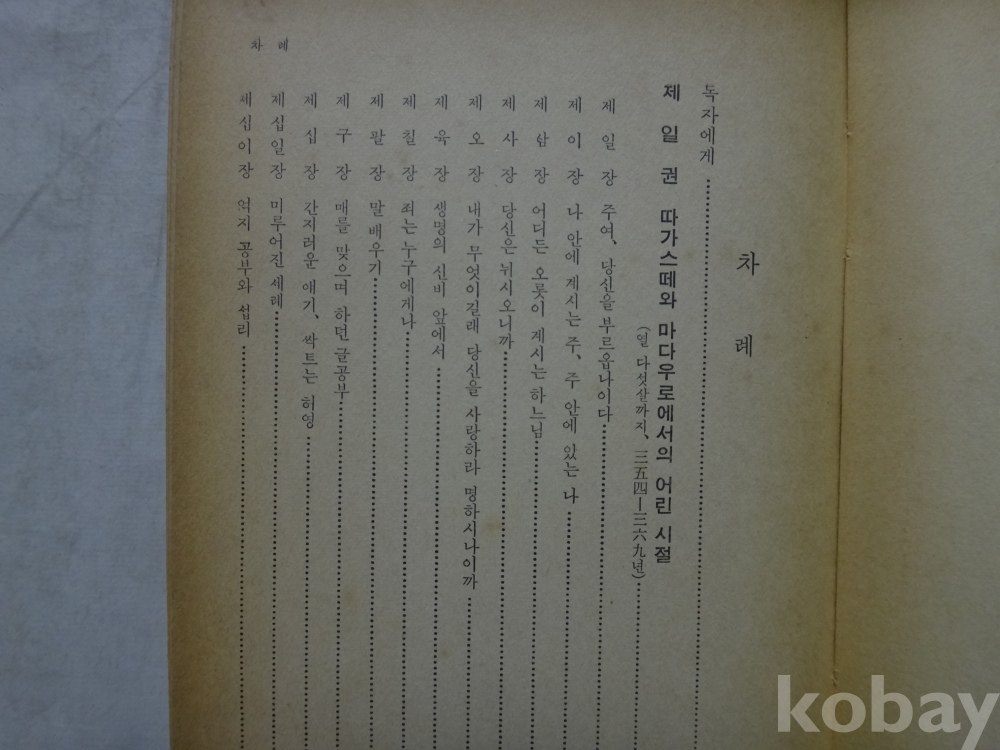 차 례
독자에게
제 일 권 따가스떼와 마다우로에서의 어린 시절
(열 다섯살까지、三五四—三六九년)
제 일 장 주여、당신을 부르옵나이다
제 이 장 나 안에 계시는 주、주 안에 있는 나
제 삼 장 어디든 오롯이 계시는 하느님
제 사 장 당신은 뉘시오니까
제 오 장 내가 무엇이길래 당신을 사랑하라 명하시나이까
제 육 장 생명의 신비 앞에서
제 칠 장 죄는 누구에게나
제 팔 장 말 배우기
제 구 장 매를 맞으며 하던 글공부
제 십 장 간지러운 얘기、싹트는 허영
제십일장 미루어진 세례
제십이장 억지 공부와 섭리
차 례
kobay